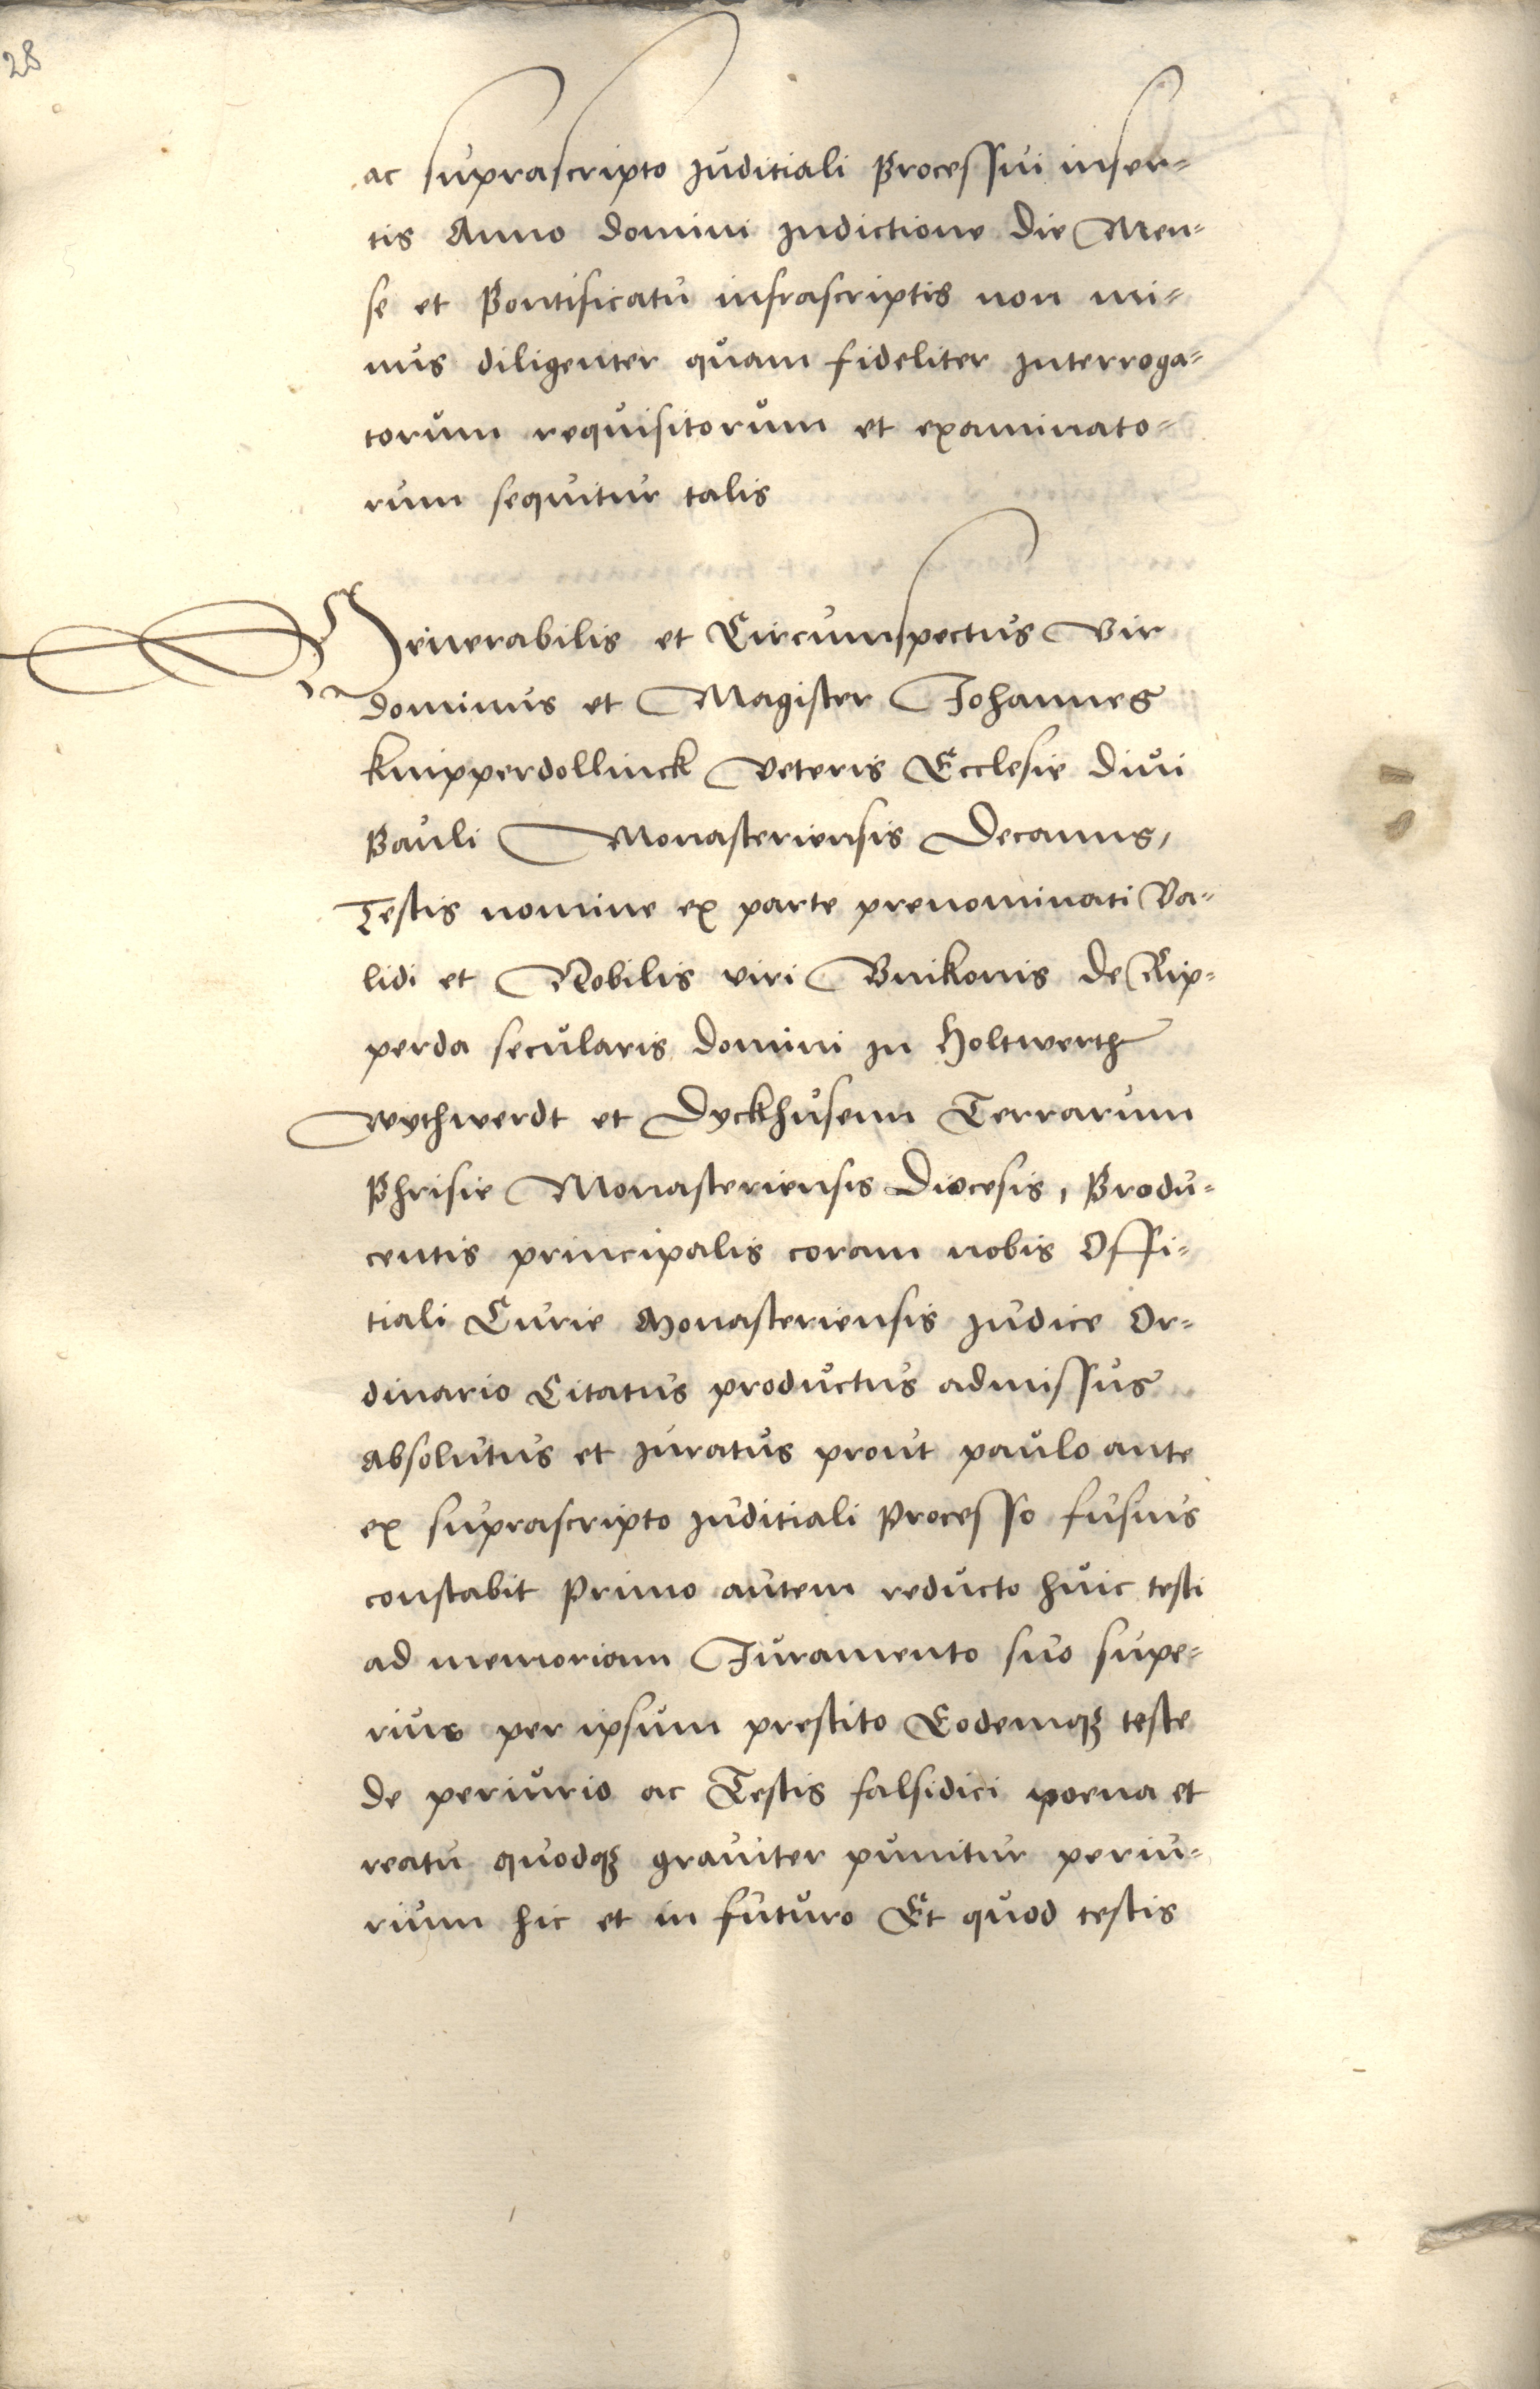 28
ac suprascripto Juditiali Processui inser=
tis Anno domini Indictione die Men=
se et Pontificatu infrascriptis non mi=
nus diligenter quam fideliter Interroga=
torum requisitorum et examinato=
rum sequitur talis
Venerabilis et Circumspectus Vir
dominus et Magister Johannes
Knipperdollinck Veteris Ecclesie diui
Pauli Monasteriensis Decanus,
Testis nomine ex parte prenominati Va=
lidi et Nobilis viri Vnikonis de Rip=
perda secularis domini in Holtwerth
Wythwerdt et Dyckhusenn Terrarum
Phrisie Monasteriensis Diocesis, Produ=
centis principalis coram nobis Offi=
tiali Curie Monasteriensis Judice Or=
dinario Citatus productus admissus
absolutus et Juratus prout paulo ante
ex suprascripto Juditiali Processo fusius
constabit Primo autem reducto huic testi
ad memoriam Juramento suo supe=
rius per ipsum prestito Eodemqꝫ teste
de periurio ac Testis falsidici poena et
reatu quodqꝫ grauiter punitur periu=
rium hic et in futuro Et quod testis